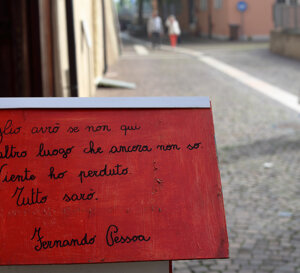 avrò se non qui
altro luogo che ancora non so.
Niente ho perduto.
Tutto sarò.
Fernando Pessoa